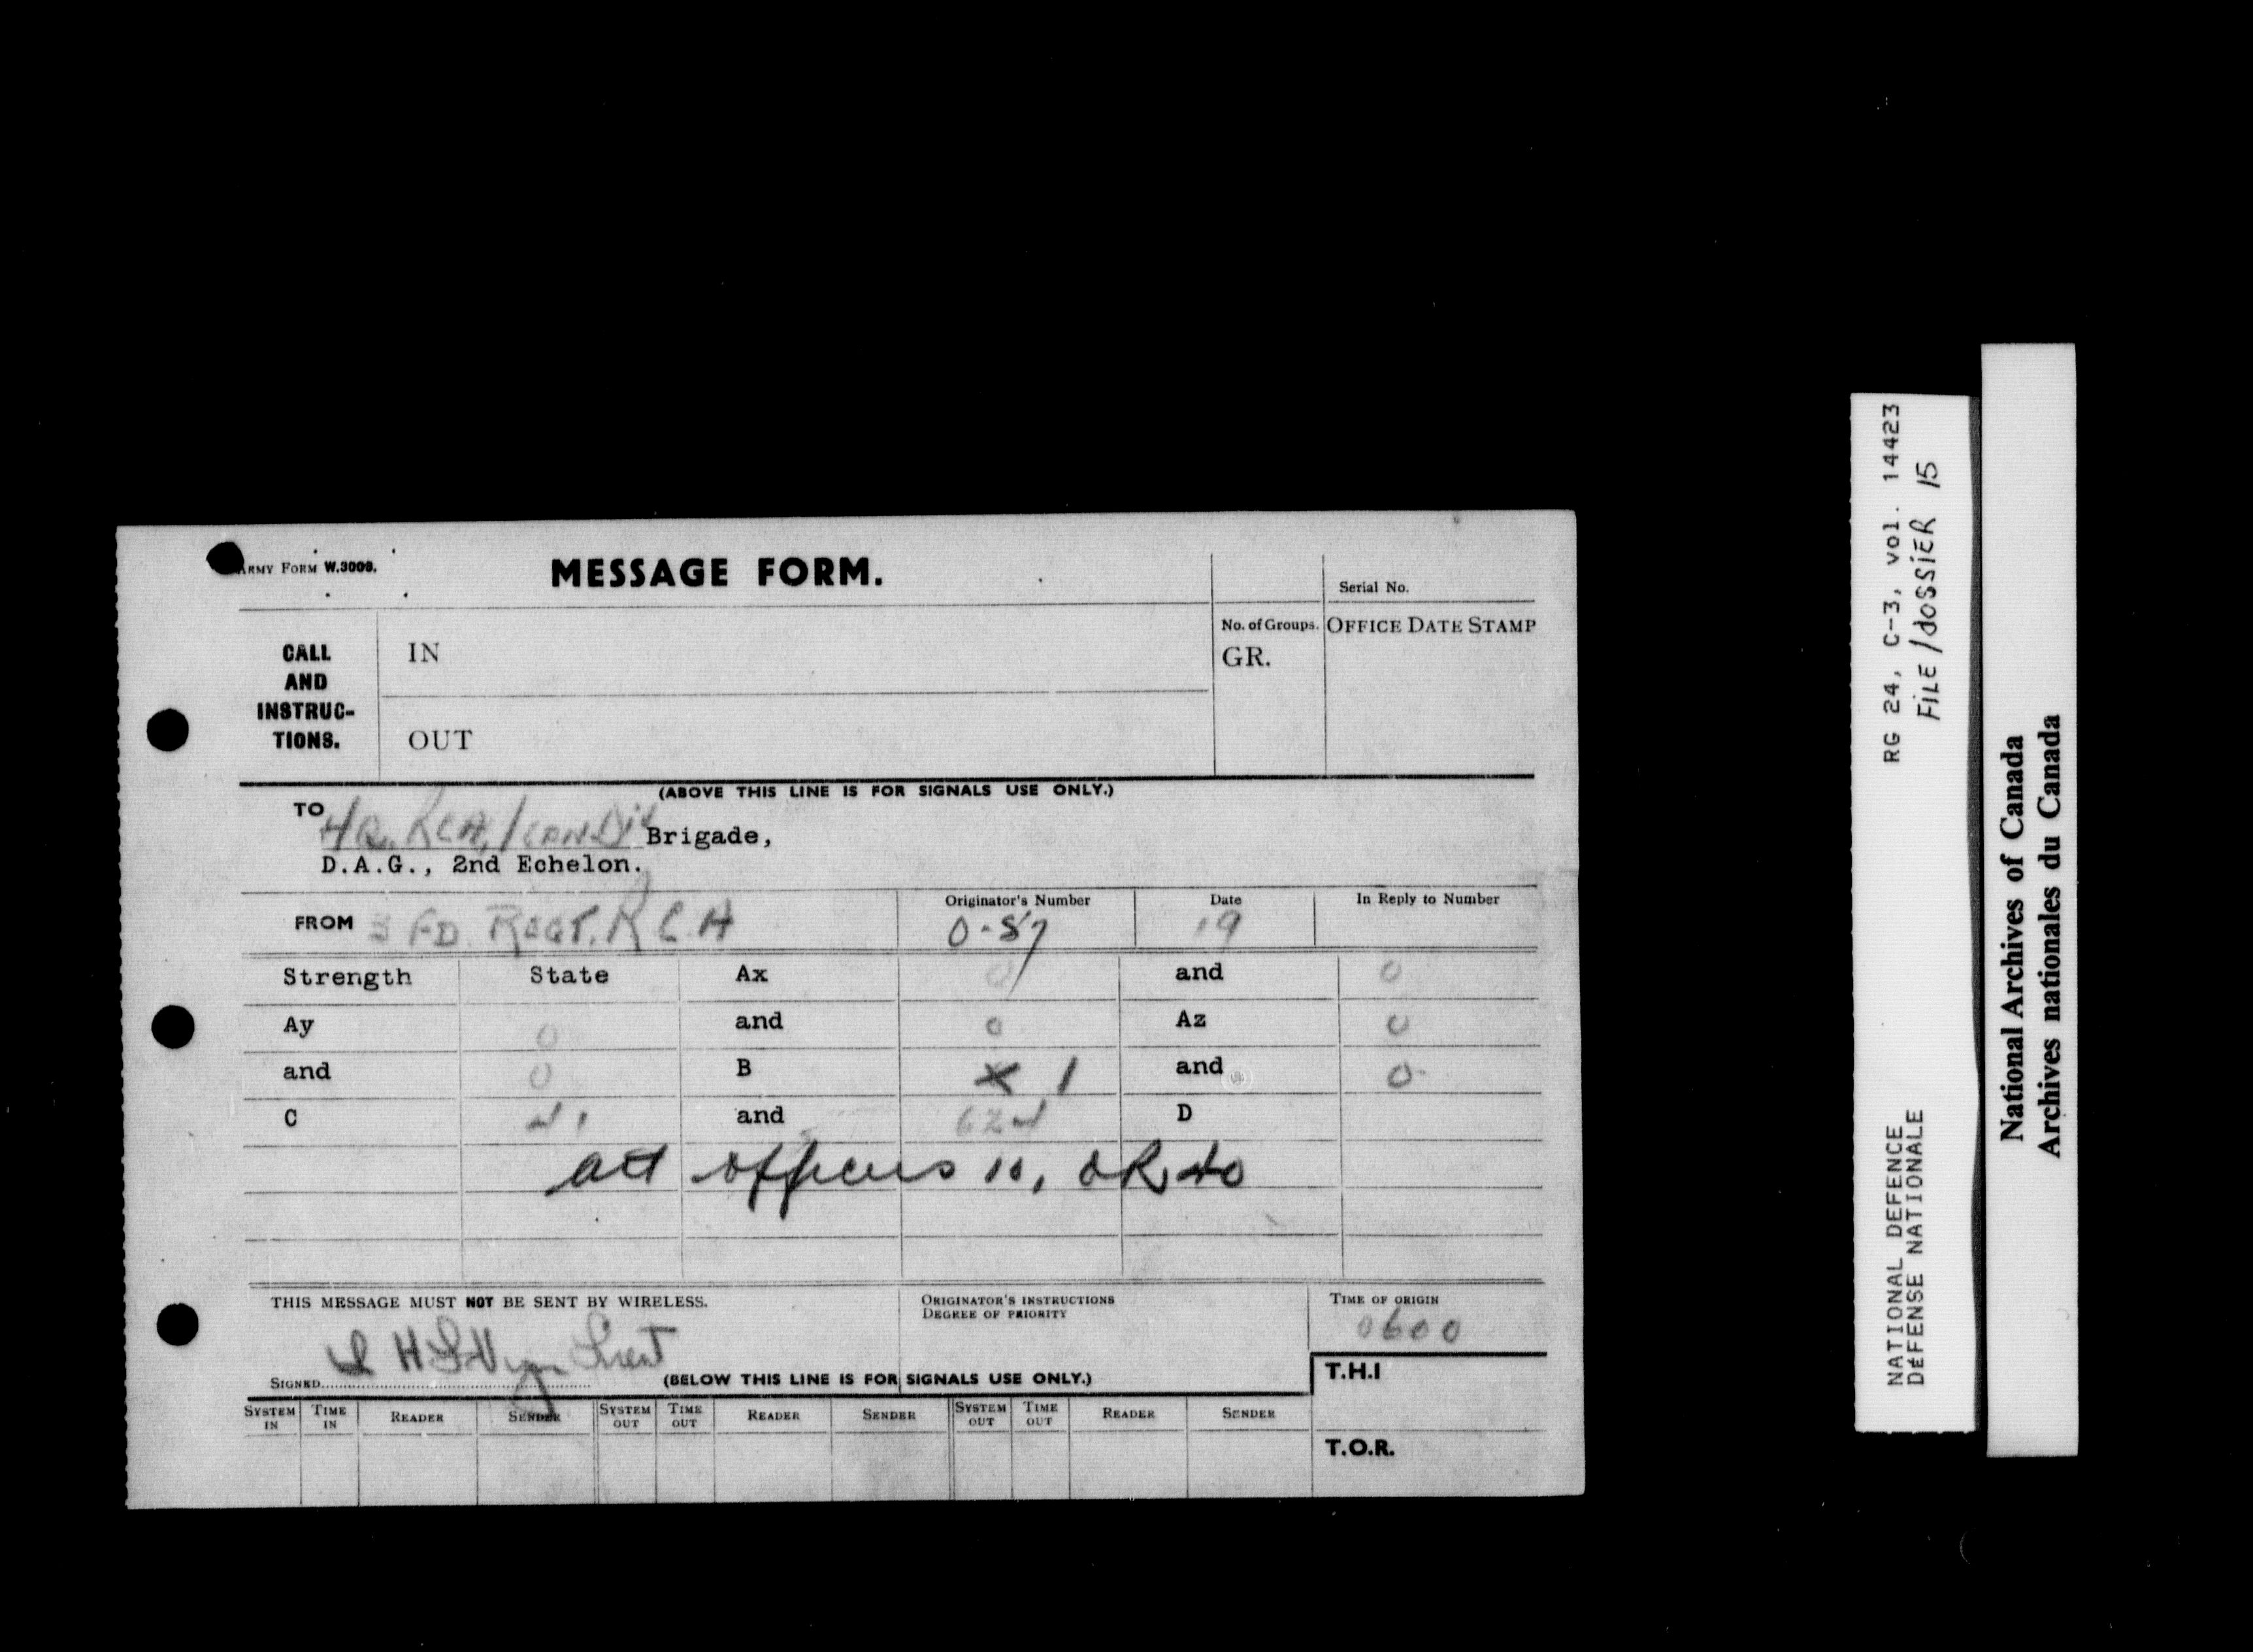 ARMY FORM W.3008.
MESSAGE FORM.
Serial No.
CALL AND INSTRUC-TIONS.
IN
OUT
No. of Groups.
GR.
OFFICE DATE STAMP
(ABOVE THIS LINE IS FOR SIGNALS USE ONLY.)
TO HQ. RCA, 1 CAN DIV Brigade,
D.A.G., 2nd Echelon.
FROM 3 FD. REGT. R C A
Originator's Number
0-87
Date
19
In Reply to Number
Strength State Ax 0 and 0
Ay 0 and 0 Az 0
and 0 B 1 and 0
C and 624 D
att officers OR
THIS MESSAGE MUST NOT BE SENT BY WIRELESS.
ORIGINATOR'S INSTRUCTIONS
DEGREE OF PRIORITY
TIME OF ORIGIN
0600
SIGNED Lieut
(BELOW THIS LINE IS FOR SIGNALS USE ONLY.)
T.H.I
SYSTEM IN TIME IN READER SENDER SYSTEM OUT TIME OUT READER SENDER SYSTEM OUT TIME OUT READER SENDER
T.O.R.
RG 24, C-3, vol. 14423
FILE/dOSSiER 15
NATIONAL DEFENCE
DÉFENSE NATIONALE
National Archives of Canada
Archives nationales du Canada